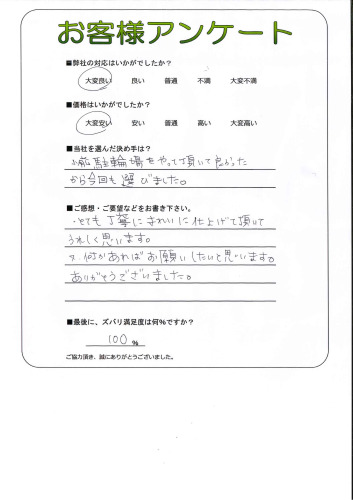 お客様アンケート
■弊社の対応はいかがでしたか？
大変良い 良い 普通 不満 大変不満
■価格はいかがでしたか？
大変安い 安い 普通 高い 大変高い
■当社を選んだ決め手は？
以前駐輪場をやって頂いて良かった
から今回も選びました。
■ご感想・ご要望などをお書き下さい。
・とても丁寧にきれいに仕上げて頂いて
うれしく思います。
又、何かあればお願いしたいと思います。
ありがとうございました。
■最後に、ズバリ満足度は何%ですか？
100 %
ご協力頂き、誠にありがとうございました。